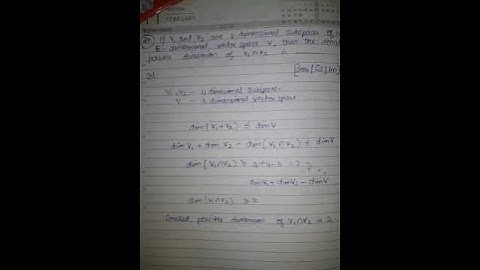 FEBRUARY
If V₁ and V₂ are 4 dimensional subspaces of a
6-dimensional vector space V, then the smallest
possible dimension of V₁∩V₂ is
Sol:
V₁, V₂ - 4 dimensional subspace
V - 6 dimensional vector space
dim (V₁+V₂) ≤ dim V
dim V₁ + dim V₂ - dim (V₁∩V₂) ≤ dim V
dim (V₁∩V₂) ≥ 4+4-6
dim V₁ + dim V₂ - dim V
dim (V₁∩V₂) ≥ 2
Smallest possible dimension of V₁∩V₂ is 2,